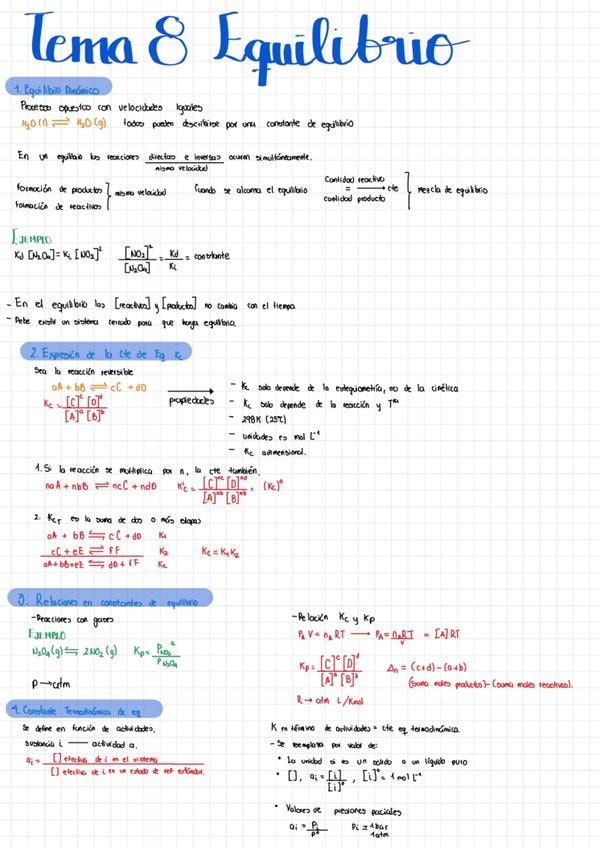 Tema 8 Equilibrio
1. Equilibrio Dinámico
Procesos opuestos con velocidades iguales
H₂O(l) ⇌ H₂O(g) todos pueden describirse por una constante de equilibrio
En un equilibrio las reacciones directas e inversas ocurren simultáneamente.
misma velocidad
formación de productos
formación de reactivos
} misma velocidad
Cuando se alcanza el equilibrio
Cantidad reactivo
= ⟶ cte
cantidad producto
} mezcla de equilibrio
EJEMPLO
Kd [N₂O₄] = Ki [NO₂]² [NO₂]²/[N₂O₄] = Kd/Ki = constante
- En el equilibrio los [reactivos] y [productos] no cambia con el tiempo.
- Debe existir un sistema cerrado para que haya equilibrio.
2. Expresión de la Cte de Eq Kc
Sea la reacción reversible
aA + bB ⇌ cC + dD
Kc = [C]ᶜ [D]ᵈ / [A]ᵃ [B]ᵇ
⟶ propiedades
- Kc solo depende de la estequiometría, no de la cinética
- Kc solo depende de la reacción y Tᵃ
- 298K (25ºC)
- unidades es mol L⁻¹
- Kc adimensional.
1. Si la reacción se multiplica por n, la cte también.
naA + nbB ⇌ ncC + ndD K'c = [C]ⁿᶜ [D]ⁿᵈ / [A]ⁿᵃ [B]ⁿᵇ = (Kc)ⁿ
2. KcT es la suma de dos o más etapas
aA + bB ⇌ cC + dD K₁
cC + eE ⇌ fF K₂
aA + bB + eE ⇌ dD + fF Kc
Kc = K₁ K₂
3. Relaciones en constantes de equilibrio
- Reacciones con gases
EJEMPLO
N₂O₄(g) ⇌ 2NO₂(g) Kp = P_NO₂² / P_N₂O₄
P → atm
- Relación Kc y Kp
P_A V = n_A RT ⟶ P_A = n_A RT / V = [A] RT
Kp = [C]ᶜ [D]ᵈ / [A]ᵃ [B]ᵇ Δn = (c+d) - (a+b)
(suma moles productos) - (suma moles reactivos).
R → atm L/Kmol
4. Constante Termodinámica de eq
Se define en función de actividades,
sustancia i — actividad a.
ai = [] efectiva de i en el sistema / [] efectiva de i en un estado de ref estándar.
K en término de actividades = cte eq termodinámica.
- Se reemplaza por valor de:
• La unidad si es un sólido o un líquido puro
• [], ai = [i]/[i]°, [i]° = 1 mol L⁻¹
• Valores de presiones parciales
ai = Pi/P° Pi = 1bar
1atm